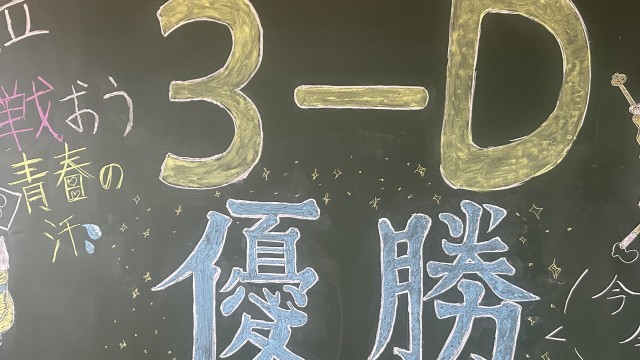 3-D
優勝
立
戦おう
青春の
汗
今